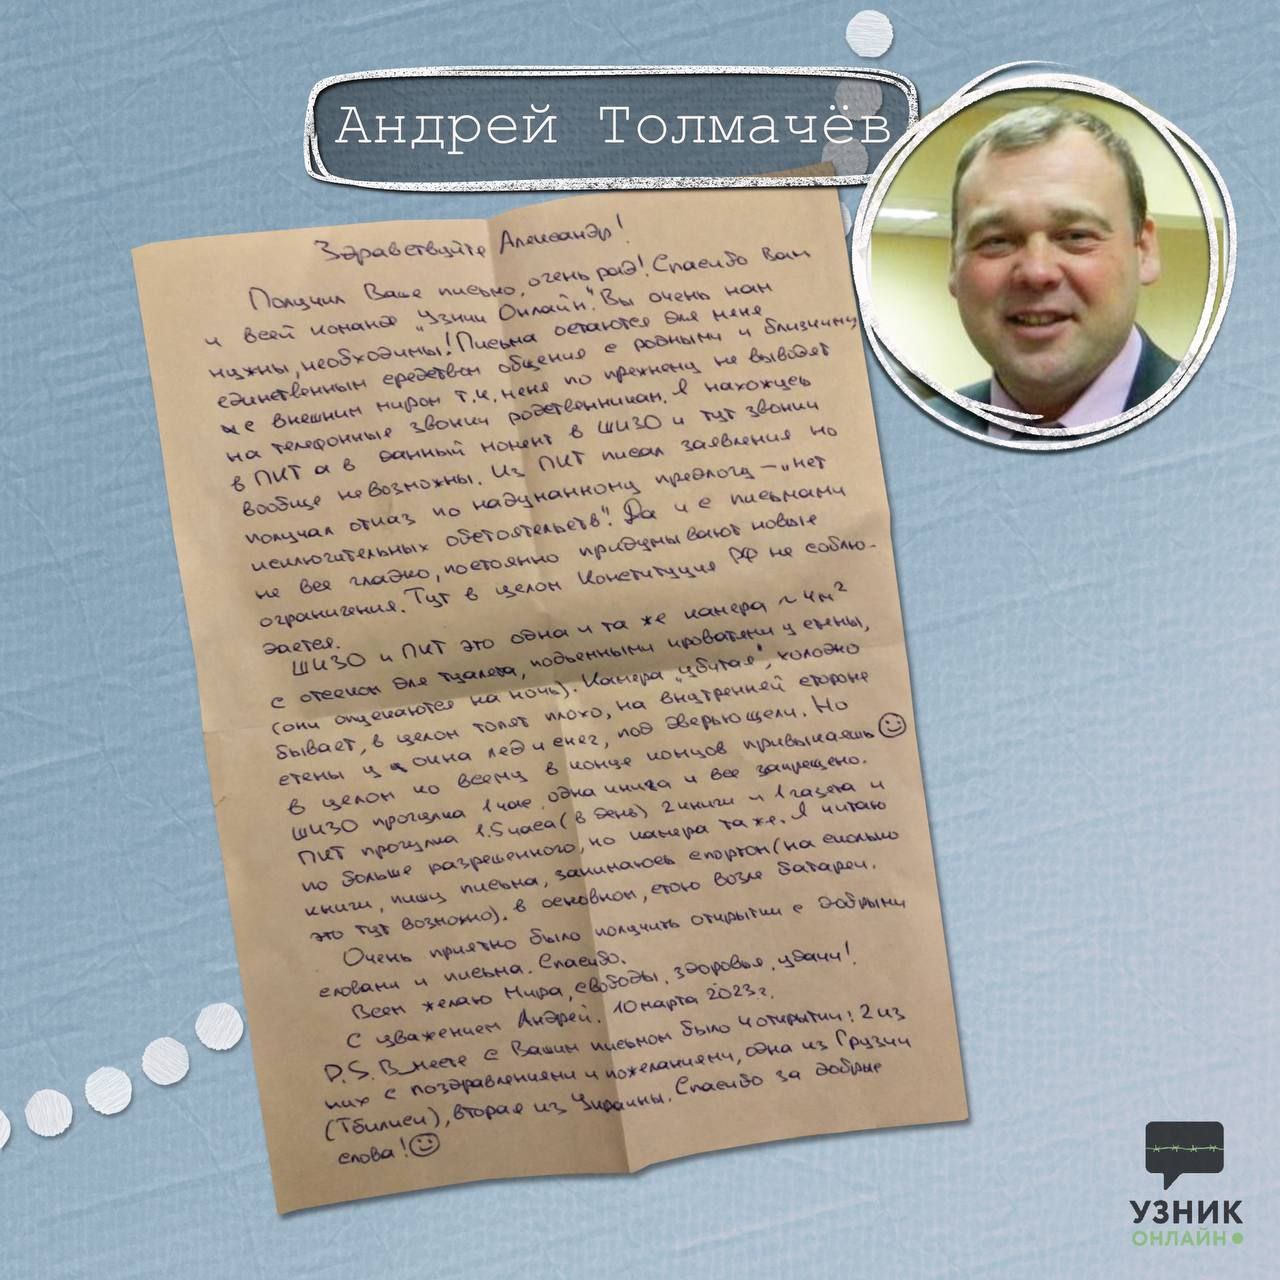 Андрей Толмачёв
Здравствуйте Александр!
Получил Ваше письмо, очень рад! Спасибо Вам
и всей команде "Узник Онлайн". Вы очень нам
нужны, необходимы! Письма остаются для меня
единственным средством общения с родными и близкими
и с внешним миром т.к. меня по прежнему не выводят
на телефонные звонки родственникам. Я нахожусь
в ПКТ а в данный момент в ШИЗО и тут звонки
вообще невозможны. Из ПКТ писал заявления но
получал отказ по надуманному предлогу – "нет
исключительных обстоятельств". Да и с письмами
не все гладко, постоянно придумывают новые
ограничения. Тут в целом Конституция РФ не соблю-
дается.
ШИЗО и ПКТ это одна и та же камера ~ 4м²
с отсеком для туалета, подъемными кроватями у стены,
(они опускаются на ночь). Камера "убитая", холодно
бывает, в целом топят плохо, на внутренней стороне
стены у окна лед и снег, под дверью щели. Но
в целом ко всему в конце концов привыкаешь ☺
ШИЗО прогулка 1 час, одна книга и все запрещено.
ПКТ прогулка 1.5 часа (в день) 2 книги и 1 газета и
по больше разрешенного, но камера та же. Я читаю
книги, пишу письма, занимаюсь спортом (на сколько
это тут возможно). В основном, стою возле батареи.
Очень приятно было получить открытки с добрыми
словами и письма. Спасибо.
Всем желаю Мира, свободы, здоровья, удачи!
С уважением Андрей. 10 марта 2023 г.
P.S. Вместе с Вашим письмом было 4 открытки: 2 из
них с поздравлениями и пожеланиями, одна из Грузии
(Тбилиси), вторая из Украины. Спасибо за добрые
слова! ☺
УЗНИК
ОНЛАЙН